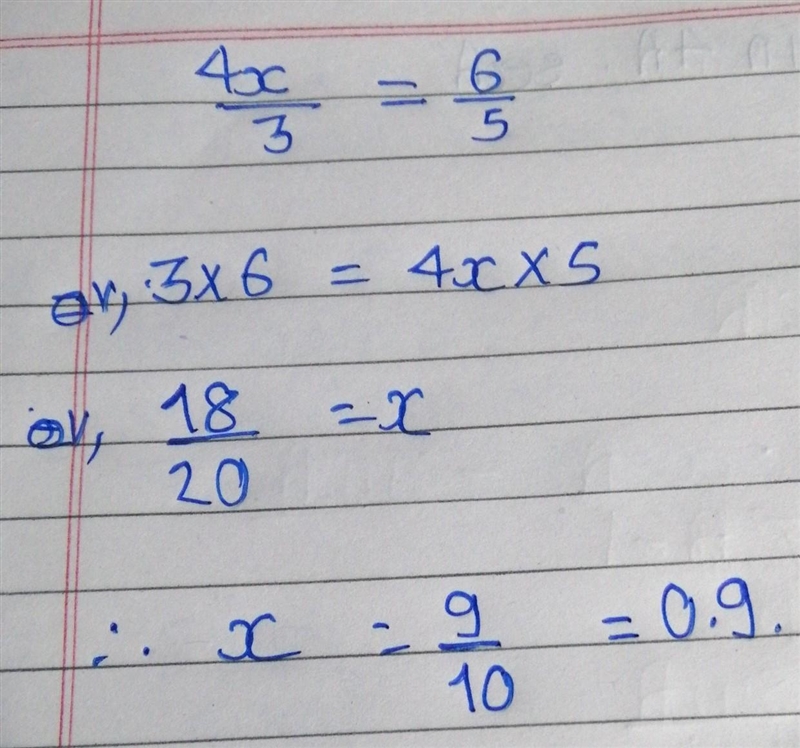 4x/3 = 6/5
or, 3x6 = 4x x 5
or, 18/20 = x
∴ x = 9/10 = 0.9.